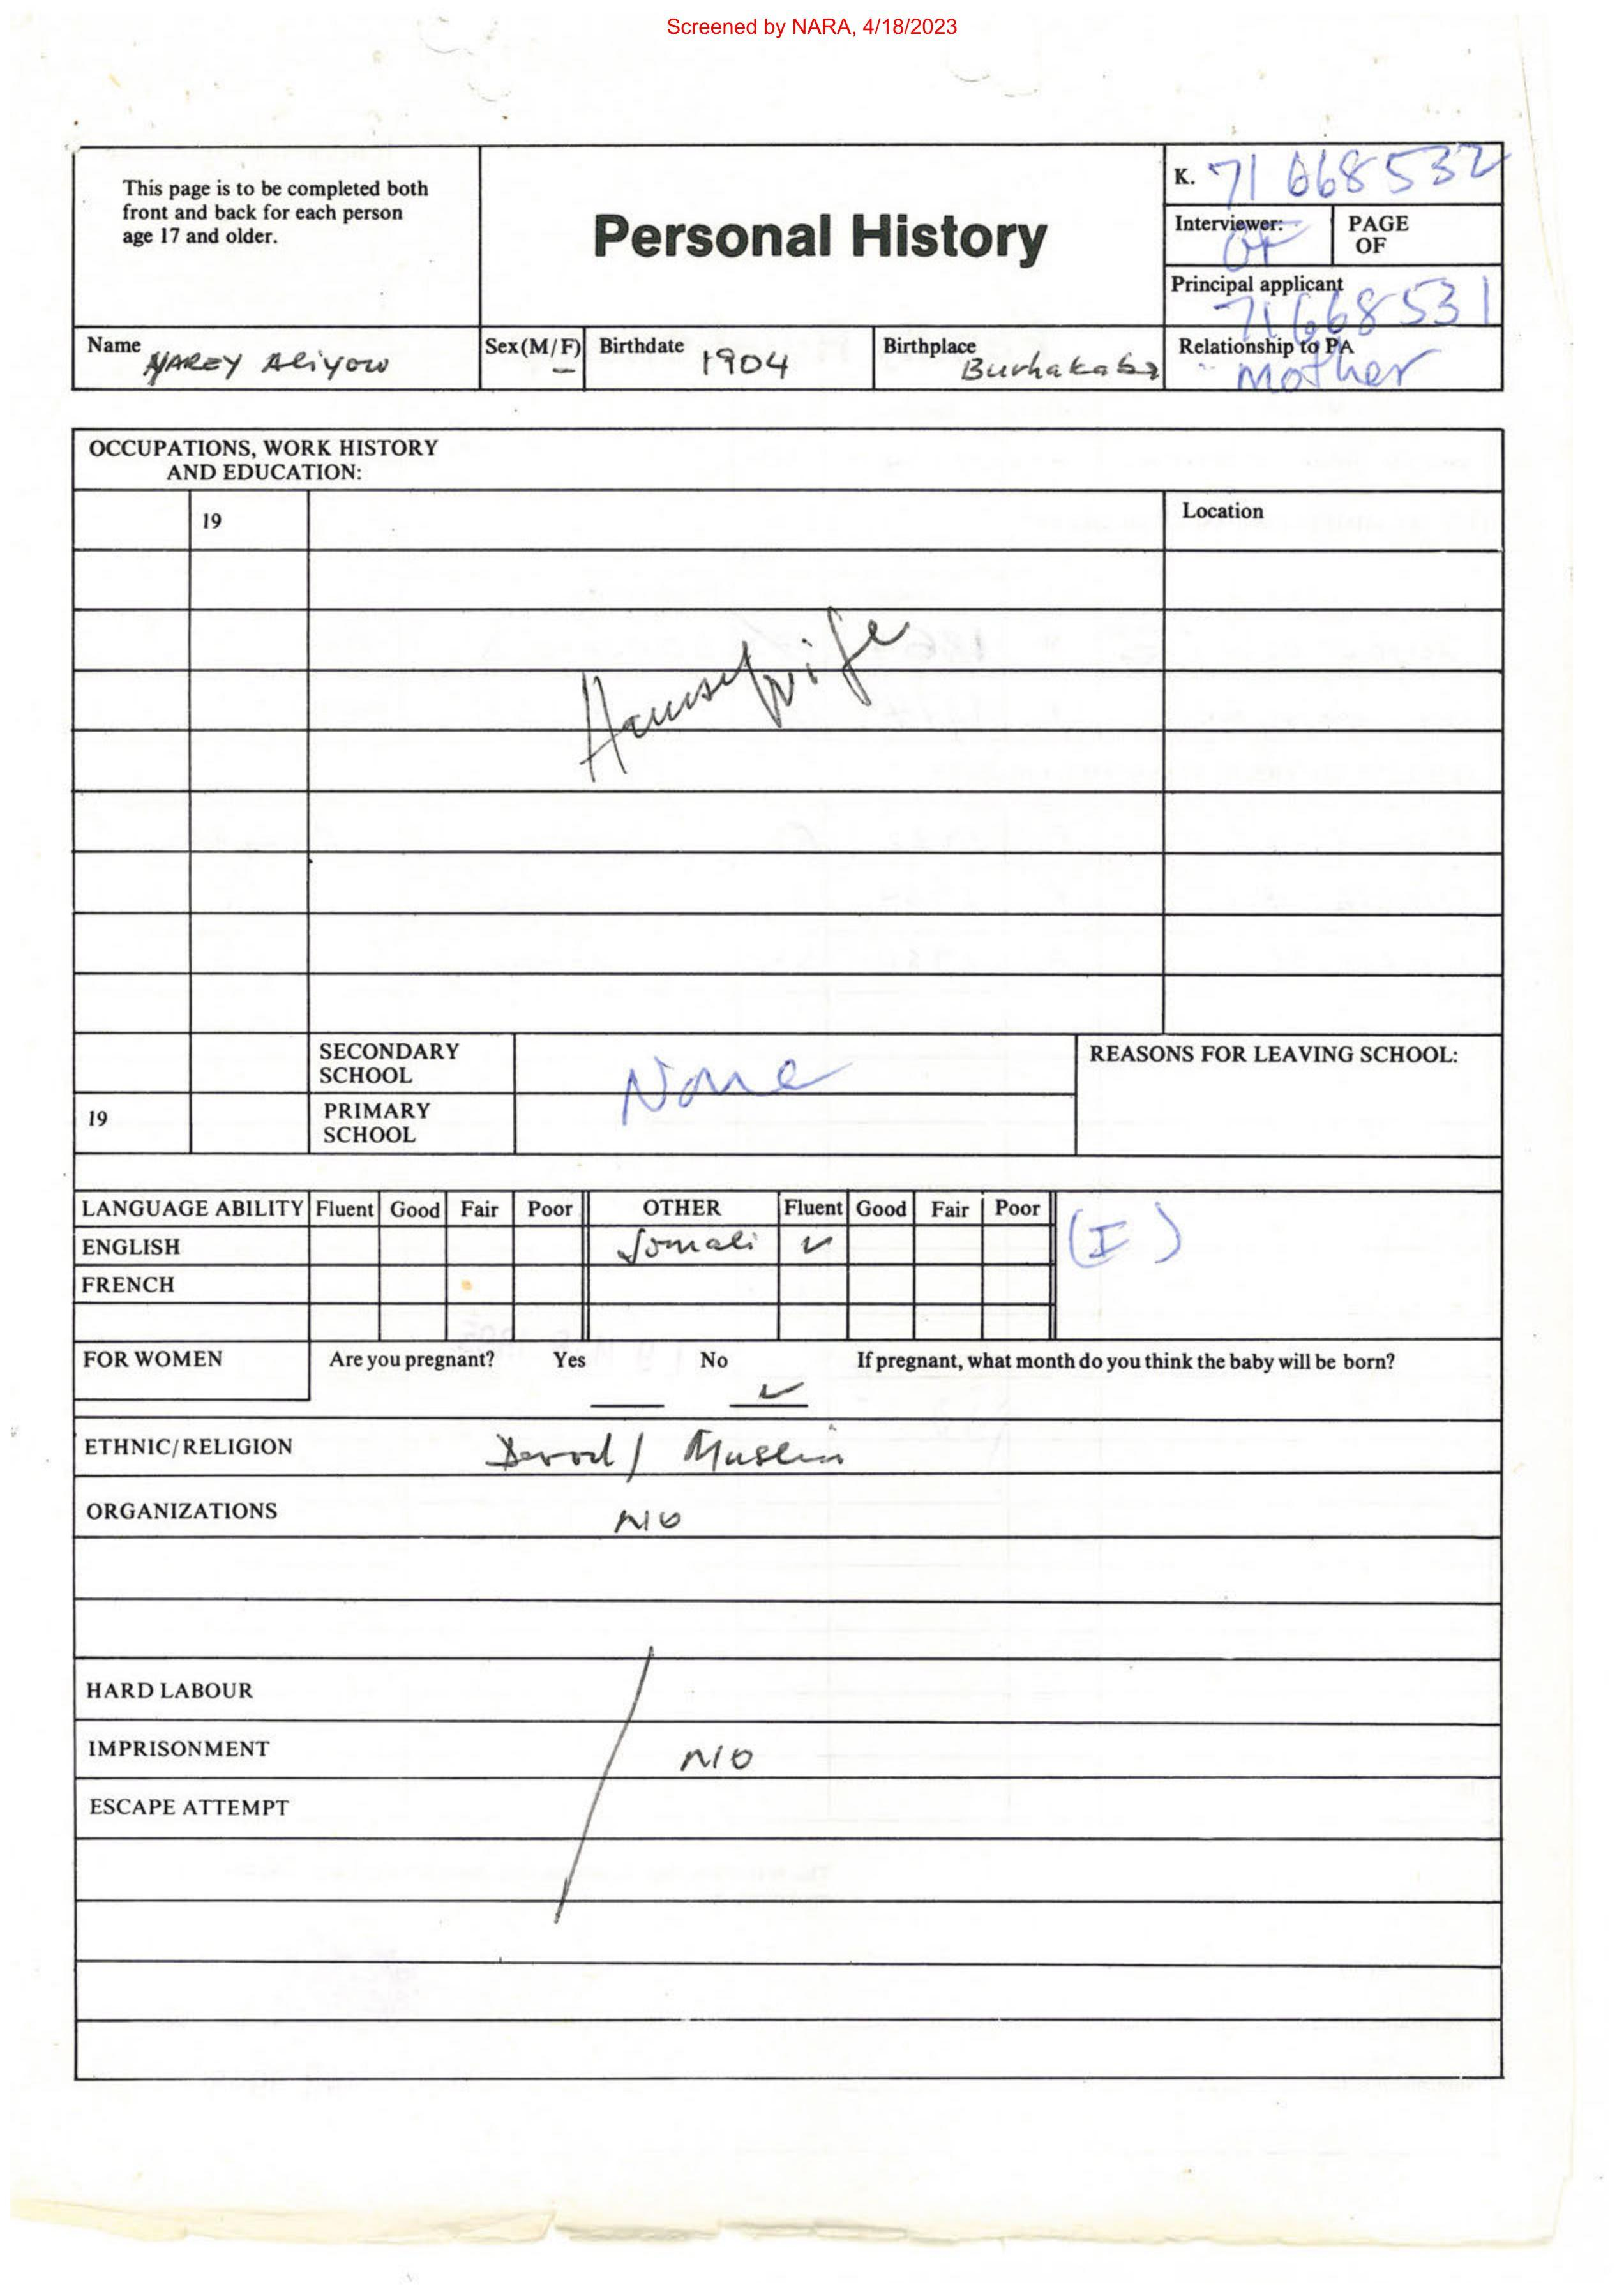 Screened by NARA, 4/18/2023
This page is to be completed both
front and back for each person
age 17 and older.
Personal History
K. 71 668532
Interviewer:
PAGE
OF
Principal applicant
71668531
Name
Aliyow
Sex (M/F)
Birthdate 1904
Birthplace
Burhakaba
Relationship to PA
Mother
OCCUPATIONS, WORK HISTORY
AND EDUCATION:
19
Location
Housewife
SECONDARY
SCHOOL
None
REASONS FOR LEAVING SCHOOL:
19
PRIMARY
SCHOOL
LANGUAGE ABILITY Fluent Good Fair Poor OTHER Fluent Good Fair Poor
(I)
ENGLISH Somali ✓
FRENCH
FOR WOMEN Are you pregnant? Yes No ✓ If pregnant, what month do you think the baby will be born?
ETHNIC/RELIGION Darod / Muslim
ORGANIZATIONS NO
HARD LABOUR
IMPRISONMENT NO
ESCAPE ATTEMPT